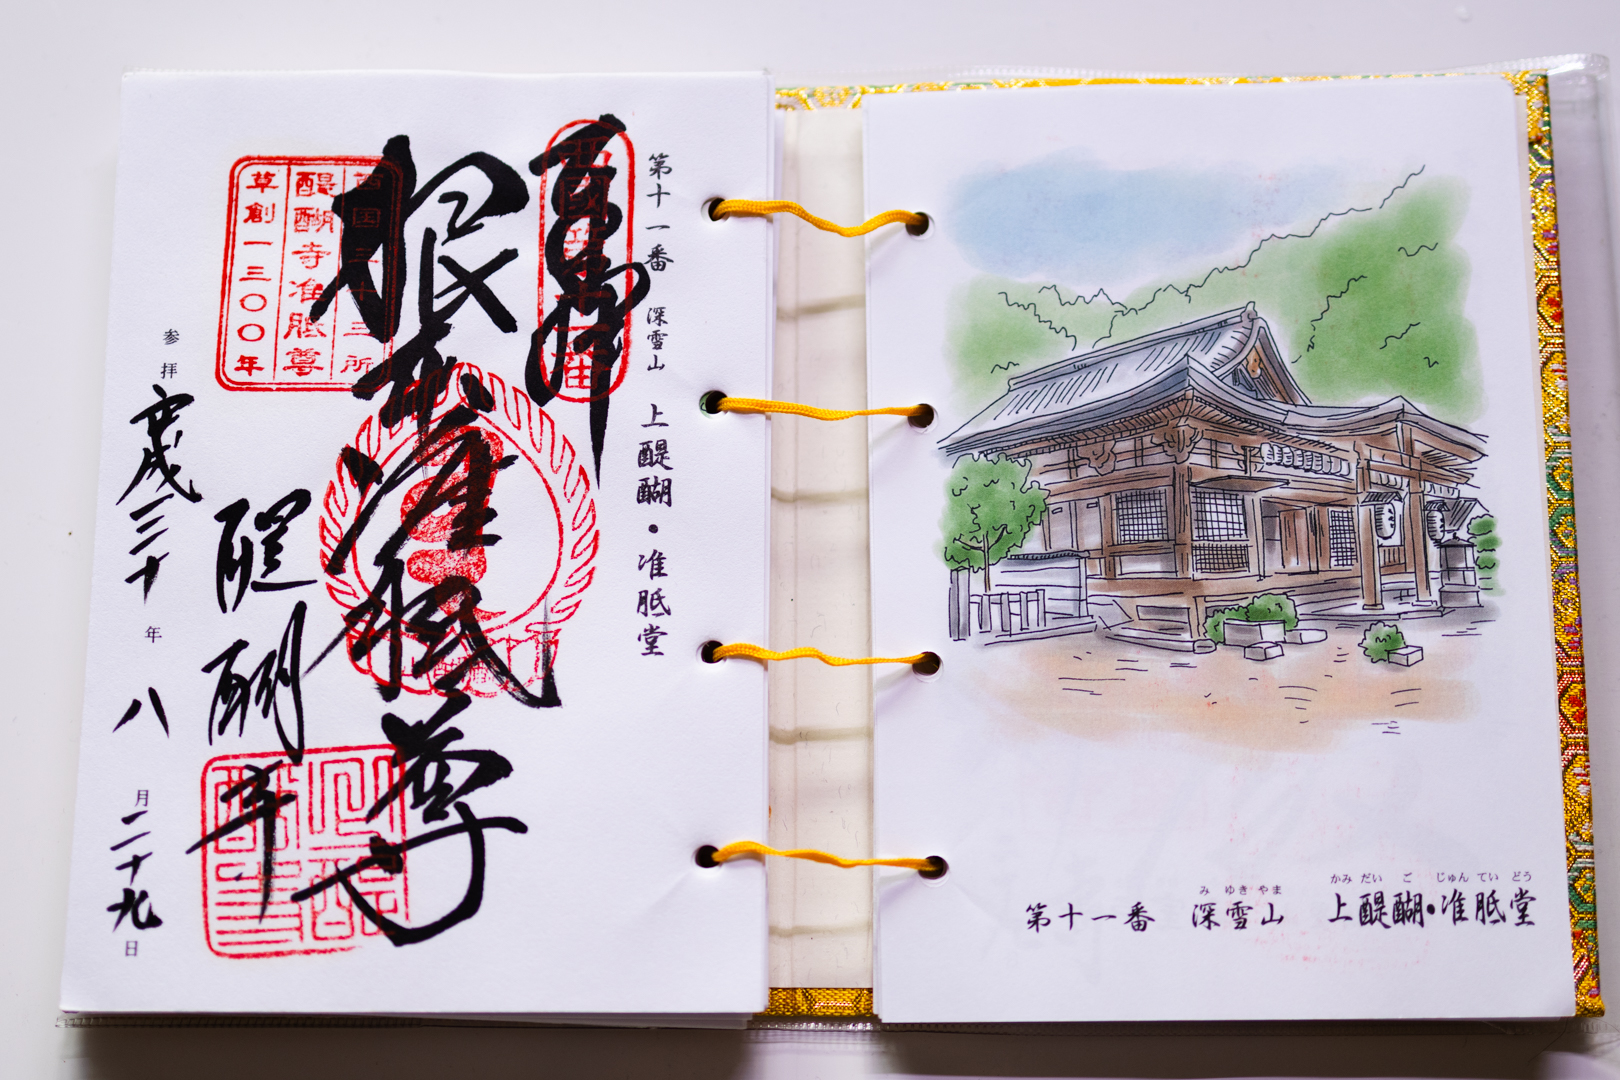 第十一番 深雪山 上醍醐・准胝堂
奉拝
根本准胝尊
西国三十三所
醍醐寺准胝尊
草創一三〇〇年
醍醐寺
参拝 平成三十年 八月二十九日
み ゆき やま かみ だい ご じゅん てい どう
第十一番 深雪山 上醍醐・准胝堂